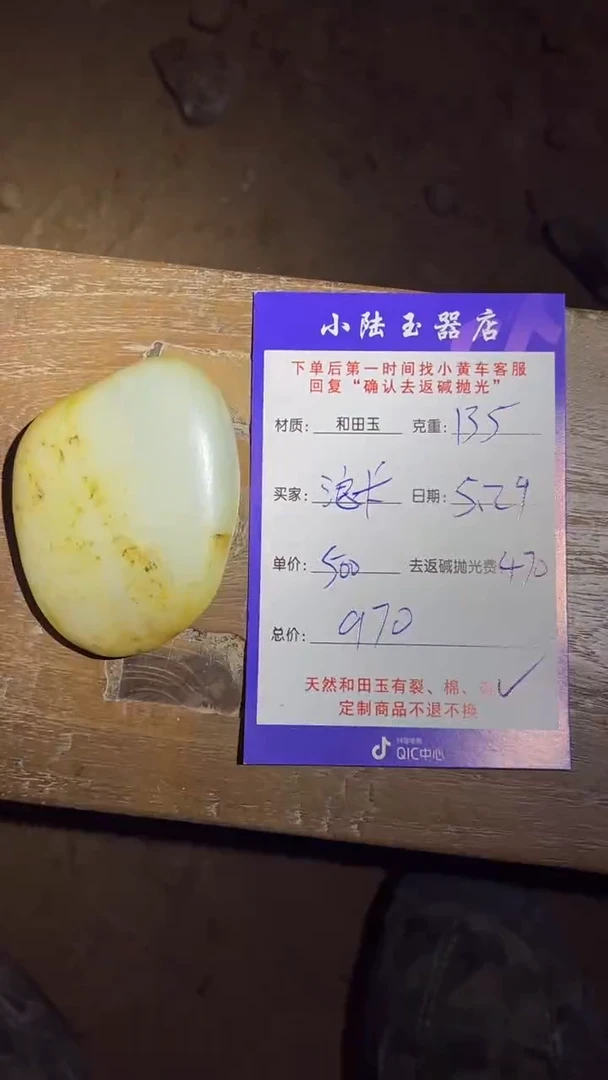 小陆玉器店
下单后第一时间找小黄车客服
回复“确认去返碱抛光”
材质: 和田玉 克重: 135
买家: 浪长 日期: 5.29
单价: 500 去返碱抛光费 470
总价: 970
天然和田玉有裂、棉、
定制商品不退不换
QIC中心